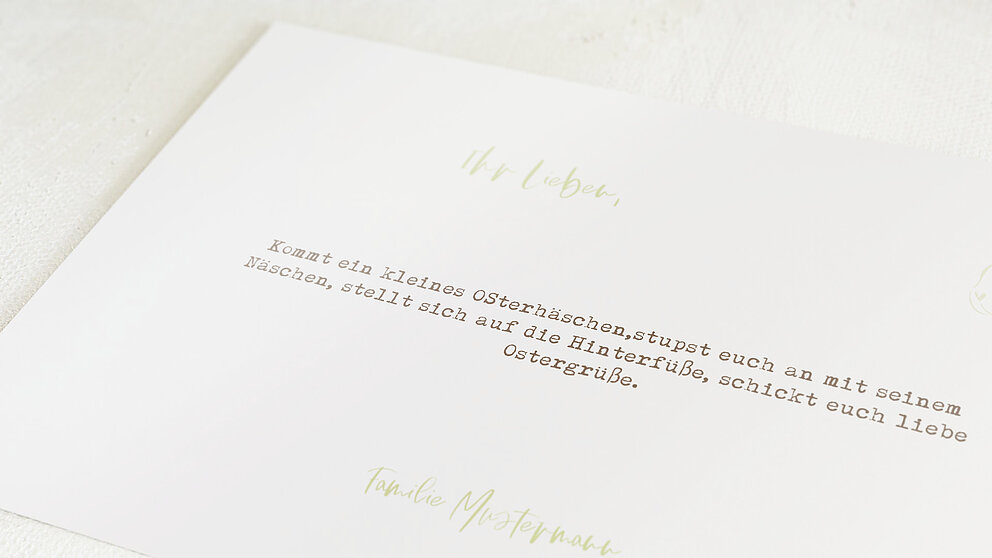 Ihr Lieben,
Kommt ein kleines OSterhäschen,stupst euch an mit seinem
Näschen, stellt sich auf die Hinterfüße, schickt euch liebe
Ostergrüße.
Familie Mustermann